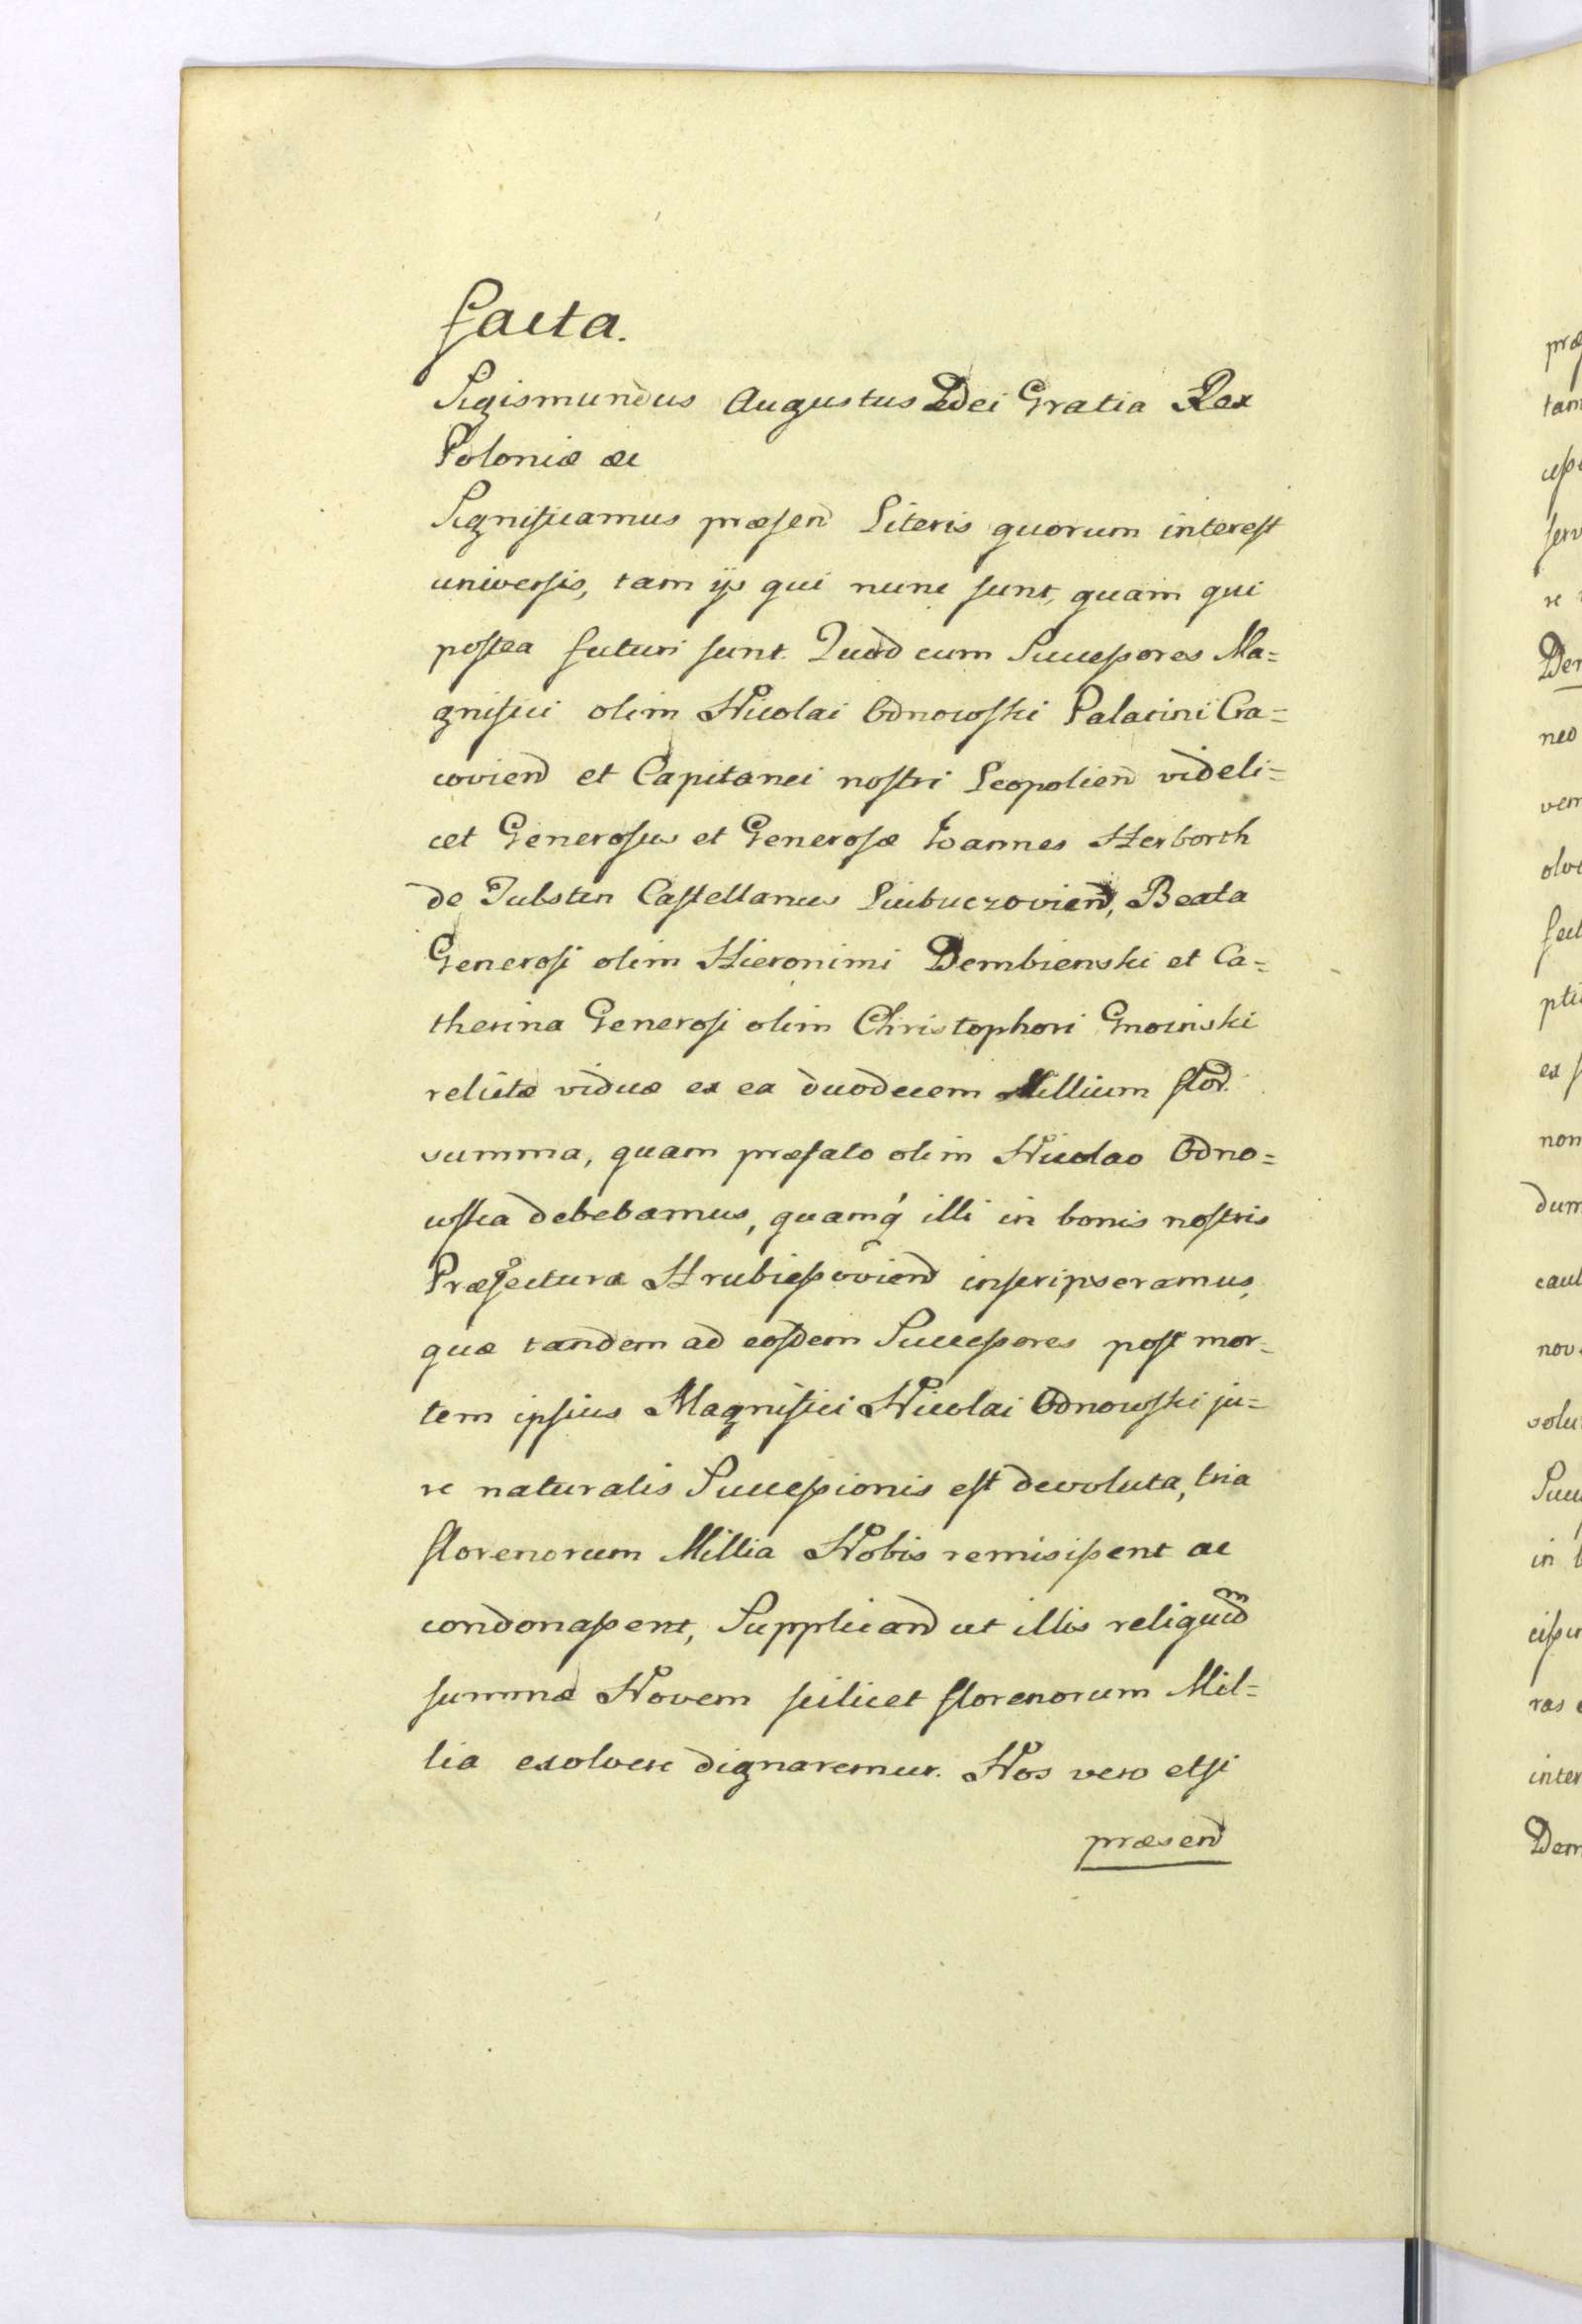 facta.
Sigismundus Augustus Dei Gratia Rex
Poloniæ &c
Significamus præsen Literis quorum interest
universis, tam ijs qui nunc sunt, quam qui
postea futuri sunt. Quod cum Successores Ma=
gnifici olim Nicolai Odnowski Palatini Cra=
covien et Capitanei nostri Leopolien videli=
cet Generosus et Generosæ Joannes Herborth
de Fulsten Castellanus Liubuczovien, Beata
Generosi olim Hieronimi Dembienski et Ca=
therina Generosi olim Christophori Gnoinski
relictæ viduæ ex ea duodecem Millium flor.
summa, quam præfato olim Nicolao Odno=
wska debebamus, quamq́ illi in bonis nostris
Præfectura Hrubiessovien inscripseramus,
quæ tandem ad eosdem Successores post mor=
tem ipsius Magnifici Nicolai Odnowski ju=
re naturalis Successionis est devoluta, tria
florenorum Millia Nobis remisissent ac
condonassent, Supplican ut illis reliquam
summæ Novem scilicet florenorum Mil=
lia exolvere dignaremur. Nos vero etsi
præsen